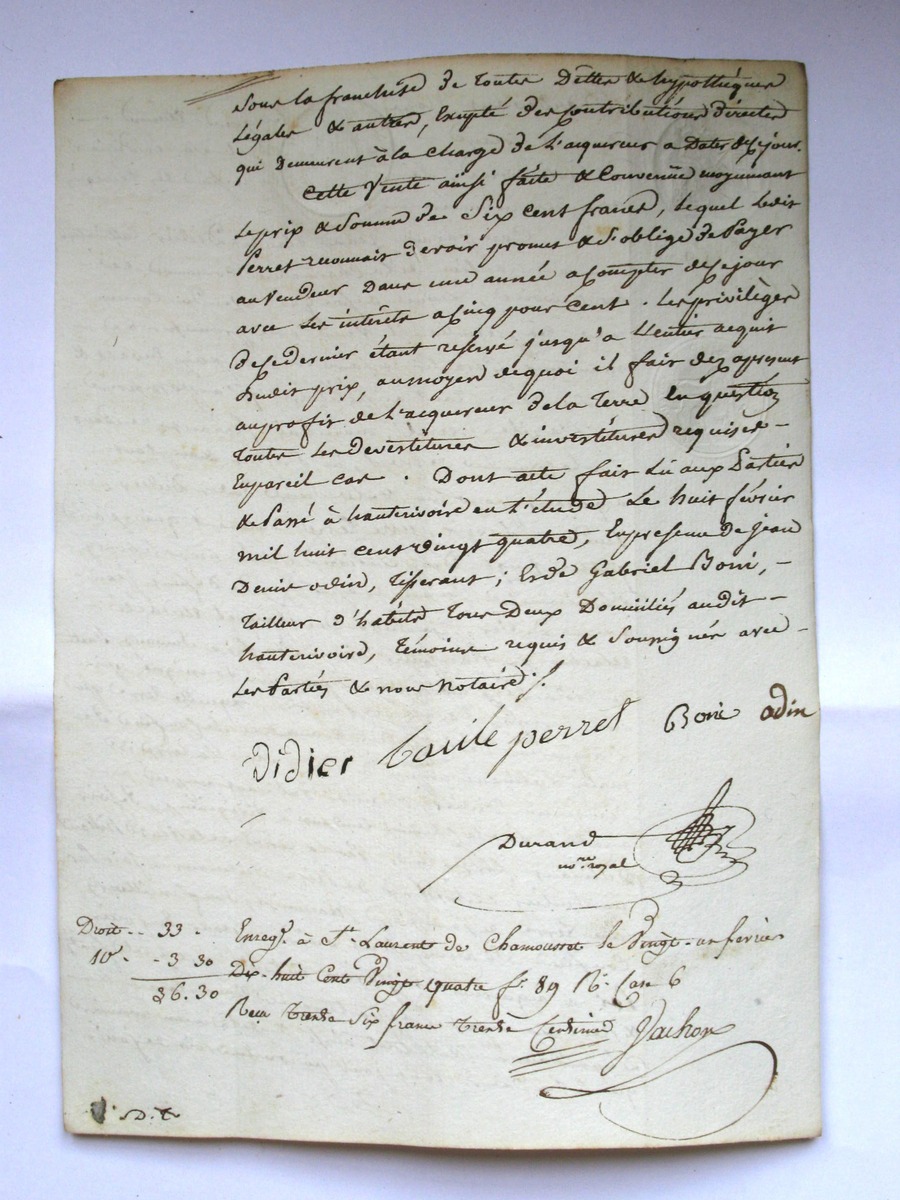 sous la franchise de toutes Dettes & hypothèques
Légales & autres, Excepté des Contributions directes
qui Demeurent à la Charge de L'acquereur a Dater de ce jour.
Cette Vente ainsi faite & Convenüe moyennant
Le prix & Somme de Six Cent francs, Lequel Ledit
Perret reconnait devoir promet & S'oblige de Payer
au Vendeur Dans une année a Compter de ce jour
avec Les intérêts a Cinq pour Cent. Les privilèges
De ce dernier étant réservé jusqu'a L'entier acquit
Dudit prix, au moyen de quoi il fait dez apresent
au profit de L'acquereur de la Terre En question
Toutes Les Devestitures & investitures requises -
En pareil Cas. Dont acte fait Lû aux Parties
& Passé à hauterivoire en L'étude Le huit février
mil huit cent vingt quatre, En presence de jean
Denis odin, Tisserant; Et de Gabriel Boni, -
Tailleur d'habits Tous Deux Domiciliés audit -
hauterivoire, Témoins requis & Soussignés avec -
Les Parties & nous notaire ./.
Didier perret Boni odin
Durand
no.re royal
Droit -- 33 -
10e - 3 30
36.30
Enreg.é à St. Laurent de Chamousset le Vingt-un février
Dix-huit Cent Vingt quatre f.o 89 R.o Case 6
Reçu Trente Six francs Trente Centimes Vachon